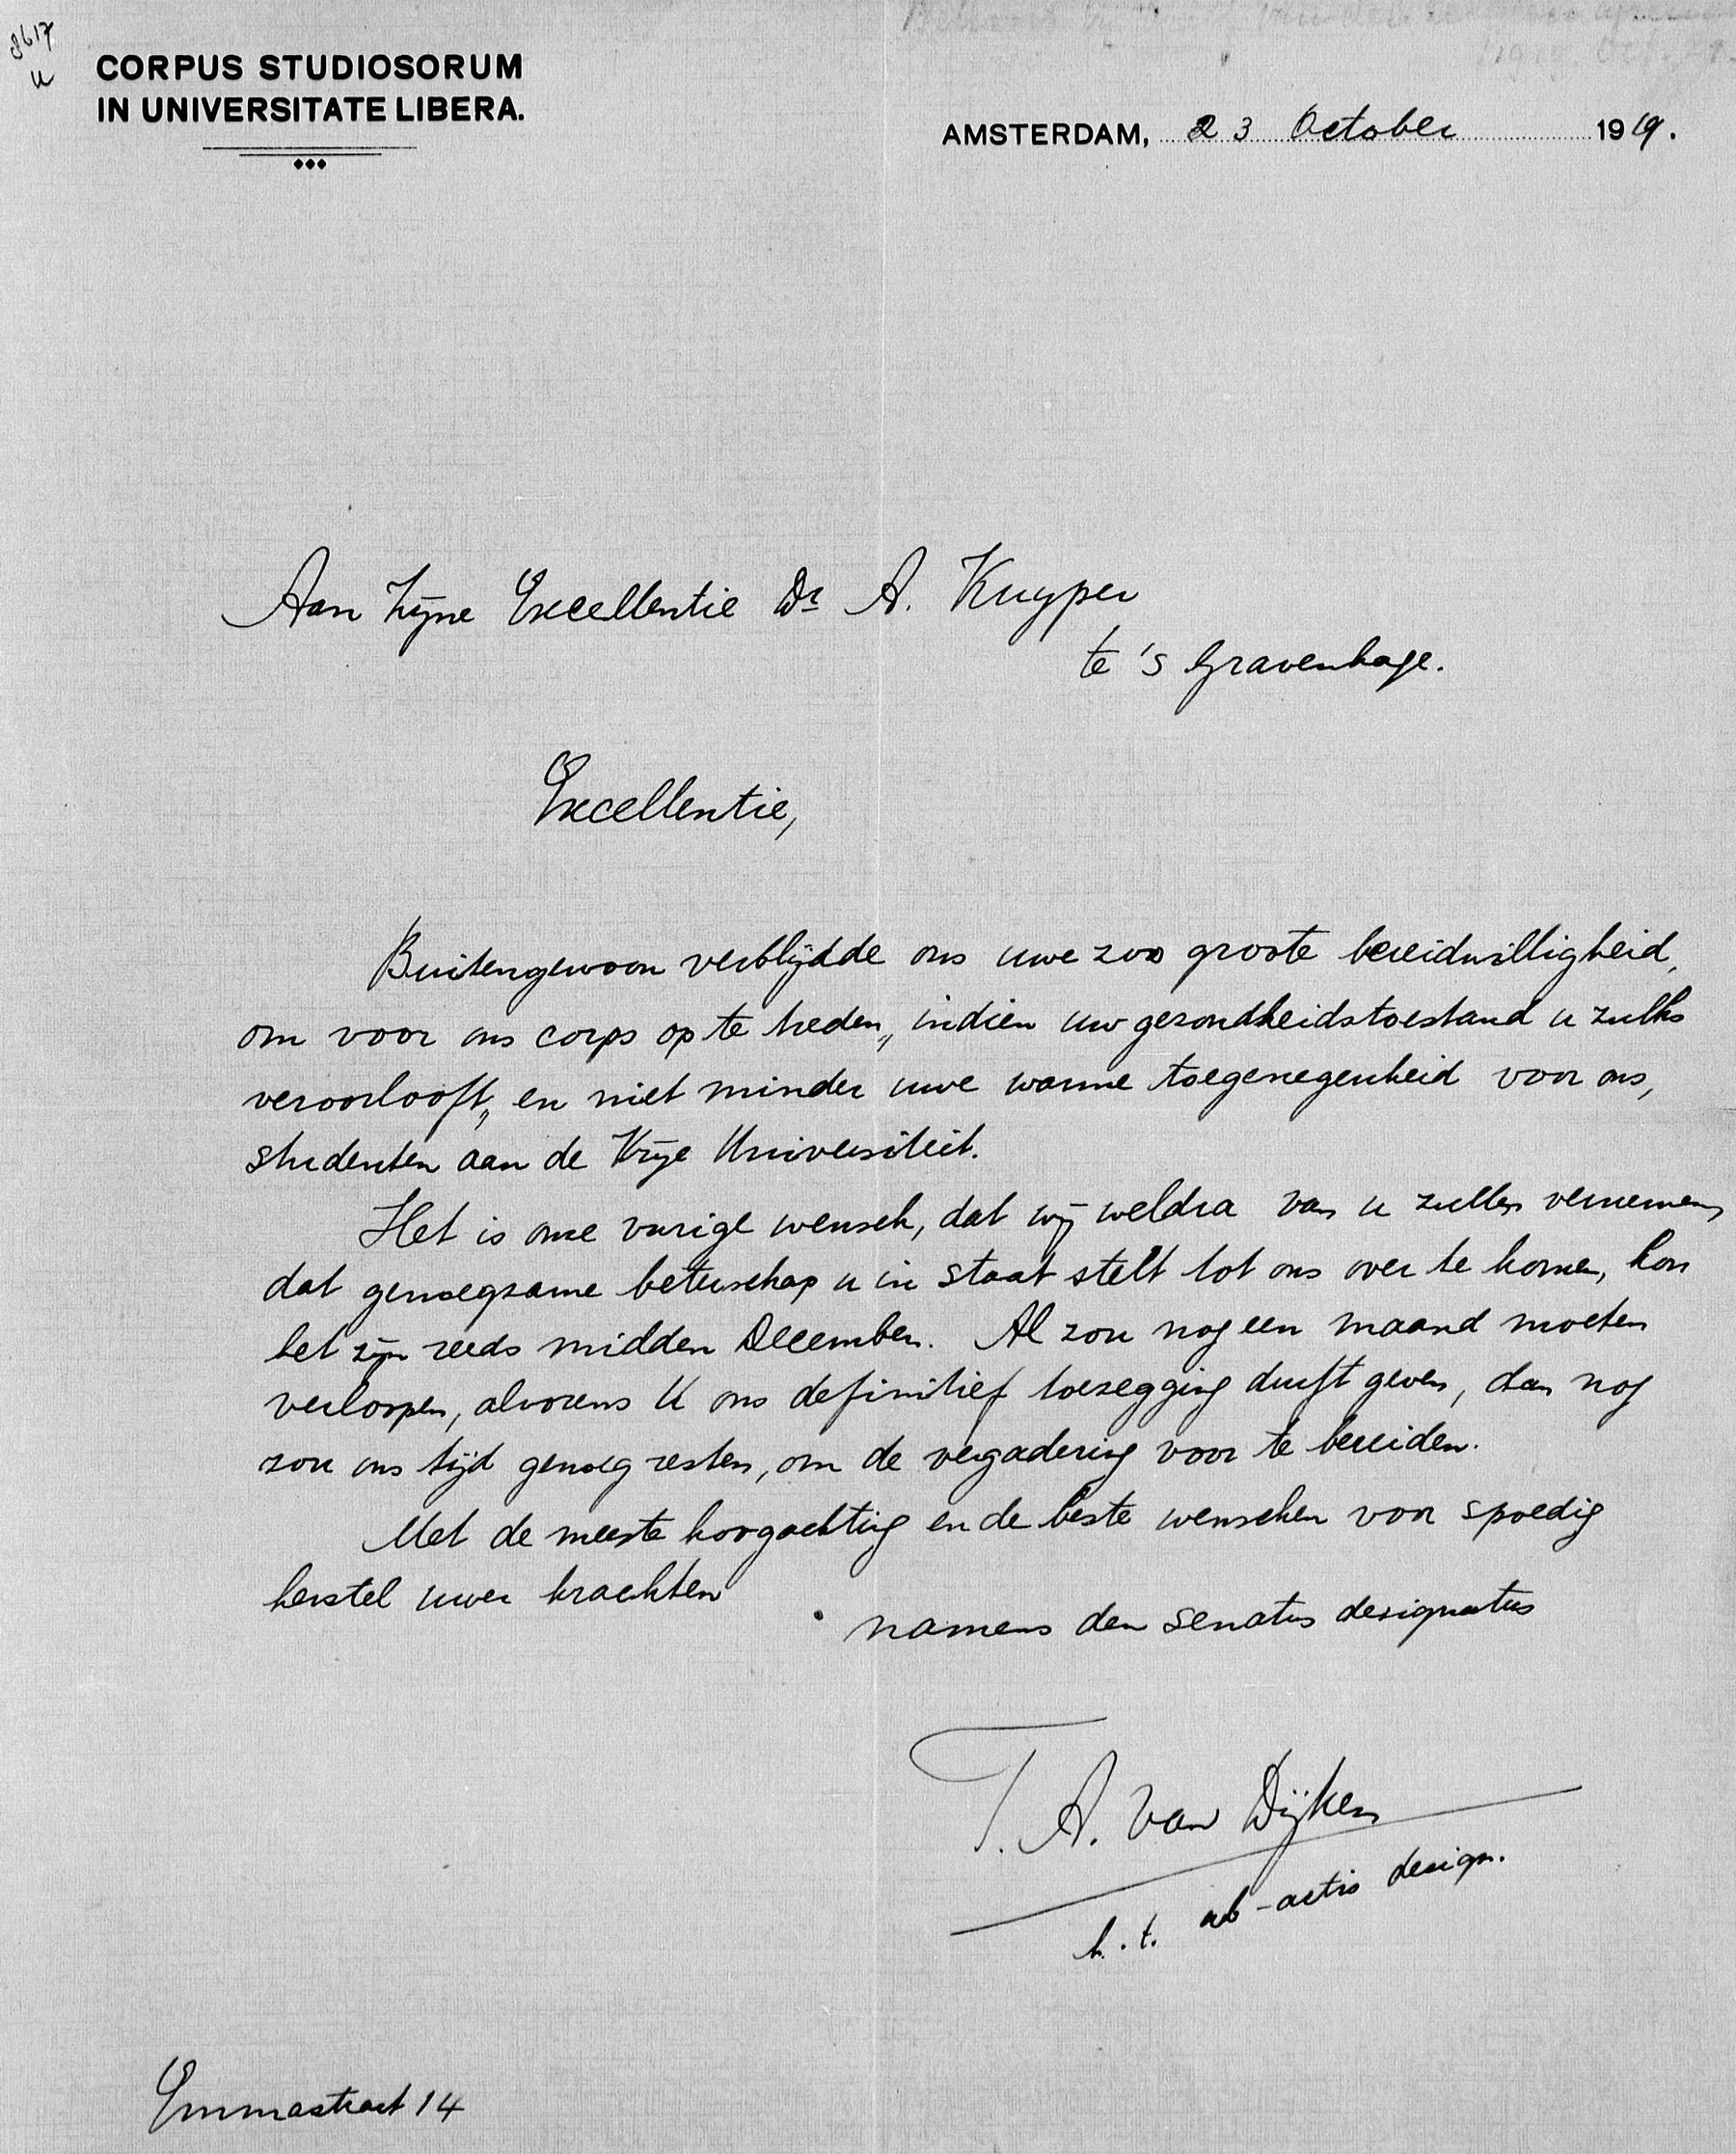 8617
u
CORPUS STUDIOSORUM
IN UNIVERSITATE LIBERA.
AMSTERDAM, 23 October 1919.
Aan Zijne Excellentie Dr A. Kuyper
te 's Gravenhage.
Excellentie,
Buitengewoon verblijdde ons uwe zoo groote bereidwilligheid,
om voor ons corps op te treden, indien uw gezondheidstoestand u zulks
veroorlooft, en niet minder uwe warme toegenegenheid voor ons,
studenten aan de Vrije Universiteit.
Het is onze vurige wensch, dat wij weldra van u zullen vernemen,
dat genoegzame beterschap u in staat stelt tot ons over te komen, kon
het zijn reeds midden December. Al zou nog een maand moeten
verloopen, alvorens U ons definitief toezegging durft geven, dan nog
zou ons tijd genoeg resten, om de vergadering voor te bereiden.
Met de meeste hoogachting en de beste wenschen voor spoedig
herstel uwer krachten
namens den senatus designatus
T. A. van Dijken
h.t. ab-actis design.
Emmastraat 14